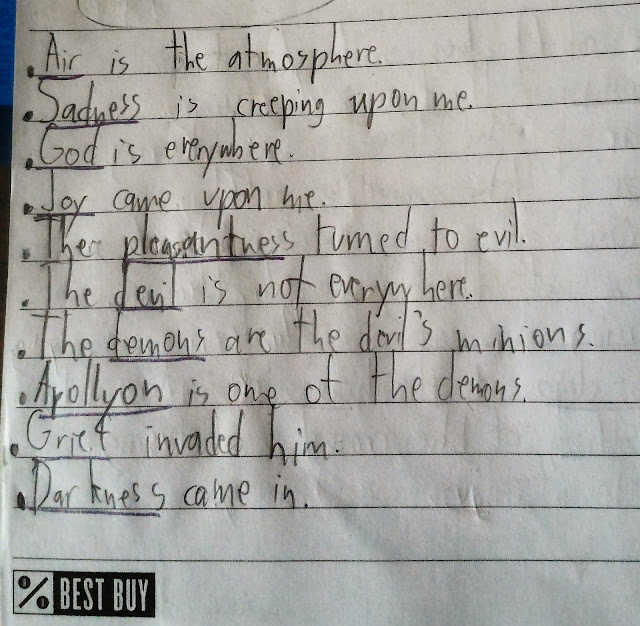 . Air is the atmosphere.
. Sadness is creeping upon me.
. God is everywhere.
. Joy came upon me.
. Ther pleasantness turned to evil.
. The devil is not everywhere.
. The demons are the devil's minions.
. Apollyon is one of the demons.
. Grief invaded him.
. Darkness came in.
% BEST BUY